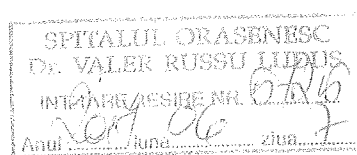 SPITALUL ORASENESC
Dr. VALER RUSSU LUDUS
INTRARE/IESIRE NR.
Anul 2021 luna 06 ziua 7